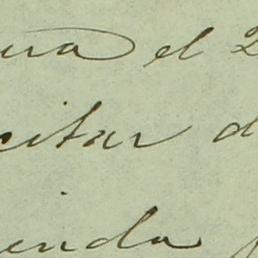 ura el 2
citar d
ienda